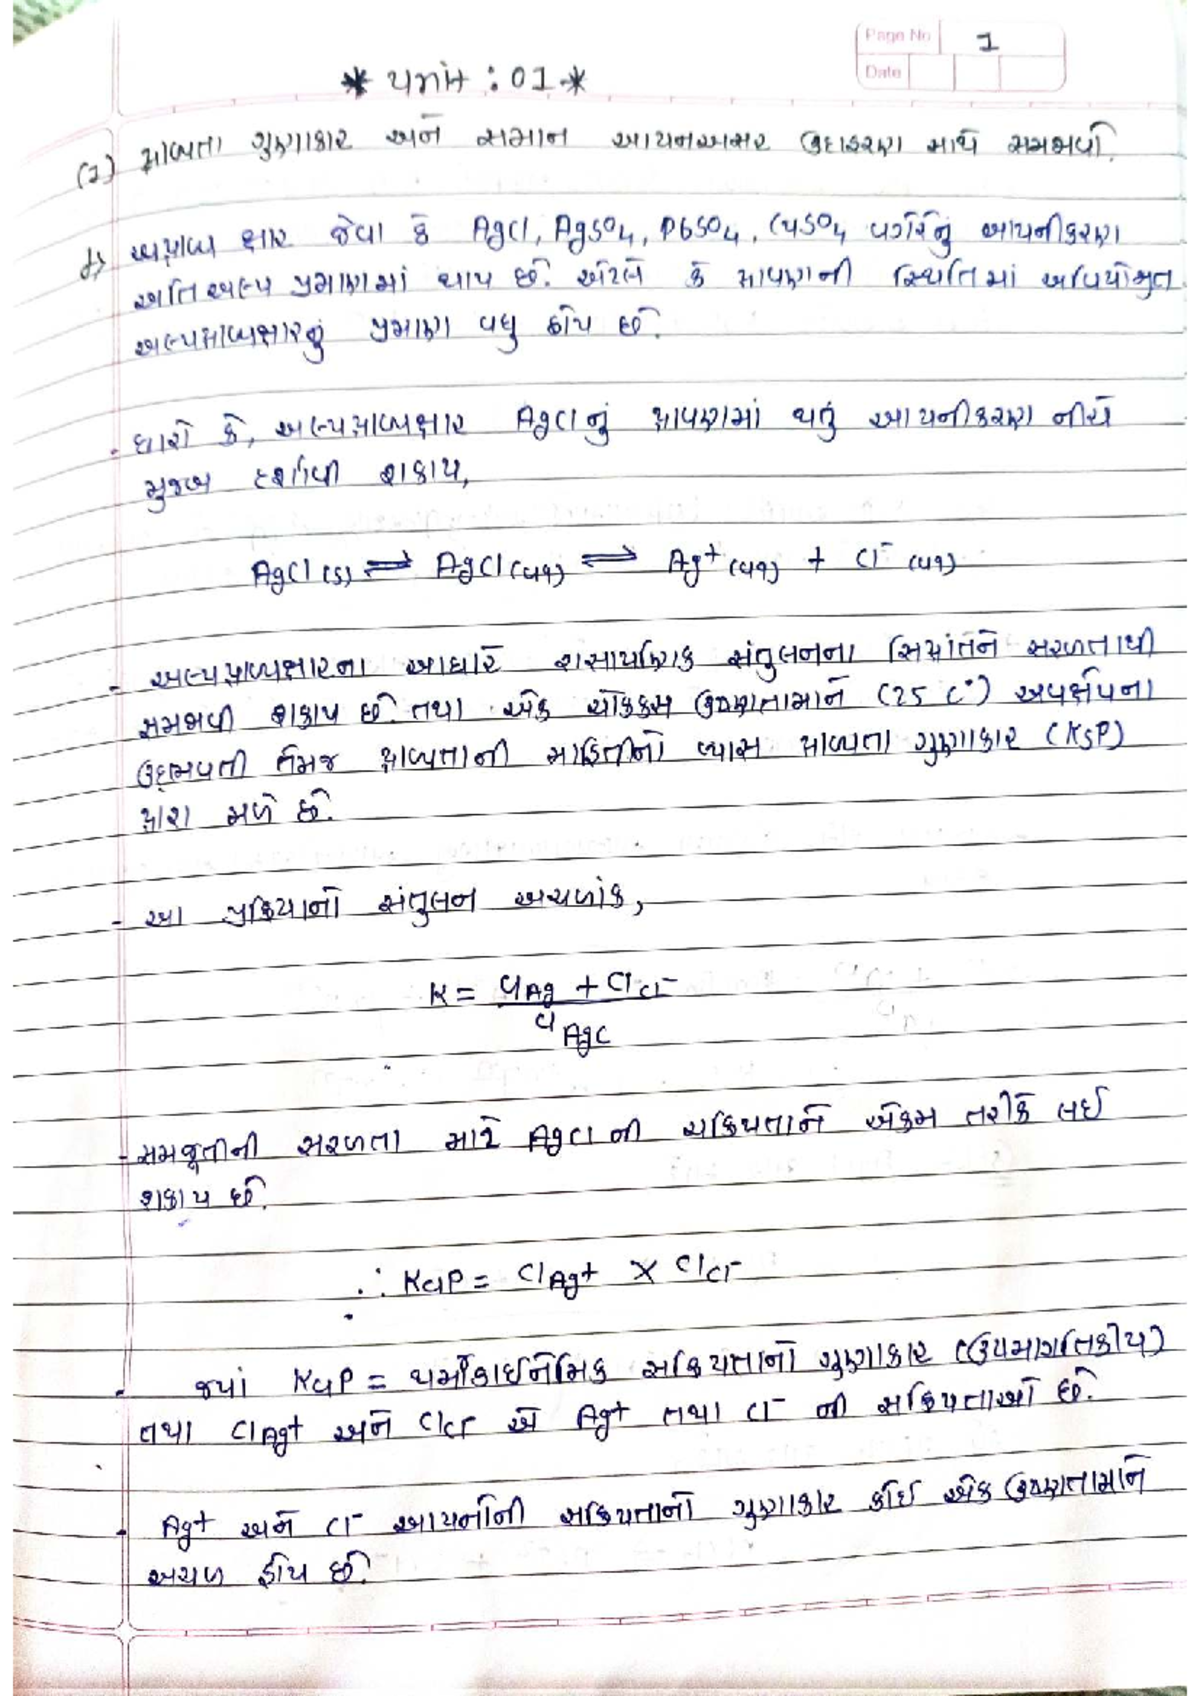 Page No 1
Date
* યુનિટ : 01 *
(1) દ્રાવ્યતા ગુણાકાર અને સમાન આયનઅસર ઉદાહરણ સાથે સમજાવો.
અદ્રાવ્ય ક્ષાર જેવા કે AgCl, AgSO4, PbSO4, CaSO4 વગેરેનું આયનીકરણ
અતિ અલ્પ પ્રમાણમાં થાય છે. એટલે કે દ્રાવણની સ્થિતિમાં અવિયોજીત
અલ્પદ્રાવ્યક્ષારનું પ્રમાણ વધુ હોય છે.
- ધારો કે, અલ્પદ્રાવ્યક્ષાર AgCl નું દ્રાવણમાં થતું આયનીકરણ નીચે
મુજબ દર્શાવી શકાય,
AgCl (s) ⇌ AgCl (aq) ⇌ Ag+ (aq) + Cl- (aq)
- અલ્પદ્રાવ્યક્ષારના આધારે રાસાયણિક સંતુલનના સિદ્ધાંતને સરળતાથી
સમજાવી શકાય છે. તથા એક ચોક્કસ ઉષ્ણતામાને (25 C°) અવક્ષેપના
ઉદ્દભવતી તેમજ દ્રાવ્યતાની માહિતીનો ખ્યાલ દ્રાવ્યતા ગુણાકાર (KSP)
દ્વારા મળે છે.
- આ પ્રક્રિયાનો સંતુલન અચળાંક,
K = aAg + aCl- / aAgC
- સમજૂતીની સરળતા માટે AgCl ની સક્રિયતાને એકમ તરીકે લઈ
શકાય છે.
∴ KaP = aAg+ × aCl-
- જયાં KaP = થર્મોડાઈનેમિક સક્રિયતાનો ગુણાકાર (ઉષ્માગતિકીય)
તથા aAg+ અને aCl- એ Ag+ તથા Cl- ની સક્રિયતાઓ છે.
- Ag+ અને Cl- આયનોની સક્રિયતાનો ગુણાકાર કોઈ એક ઉષ્ણતામાને
અચળ હોય છે.